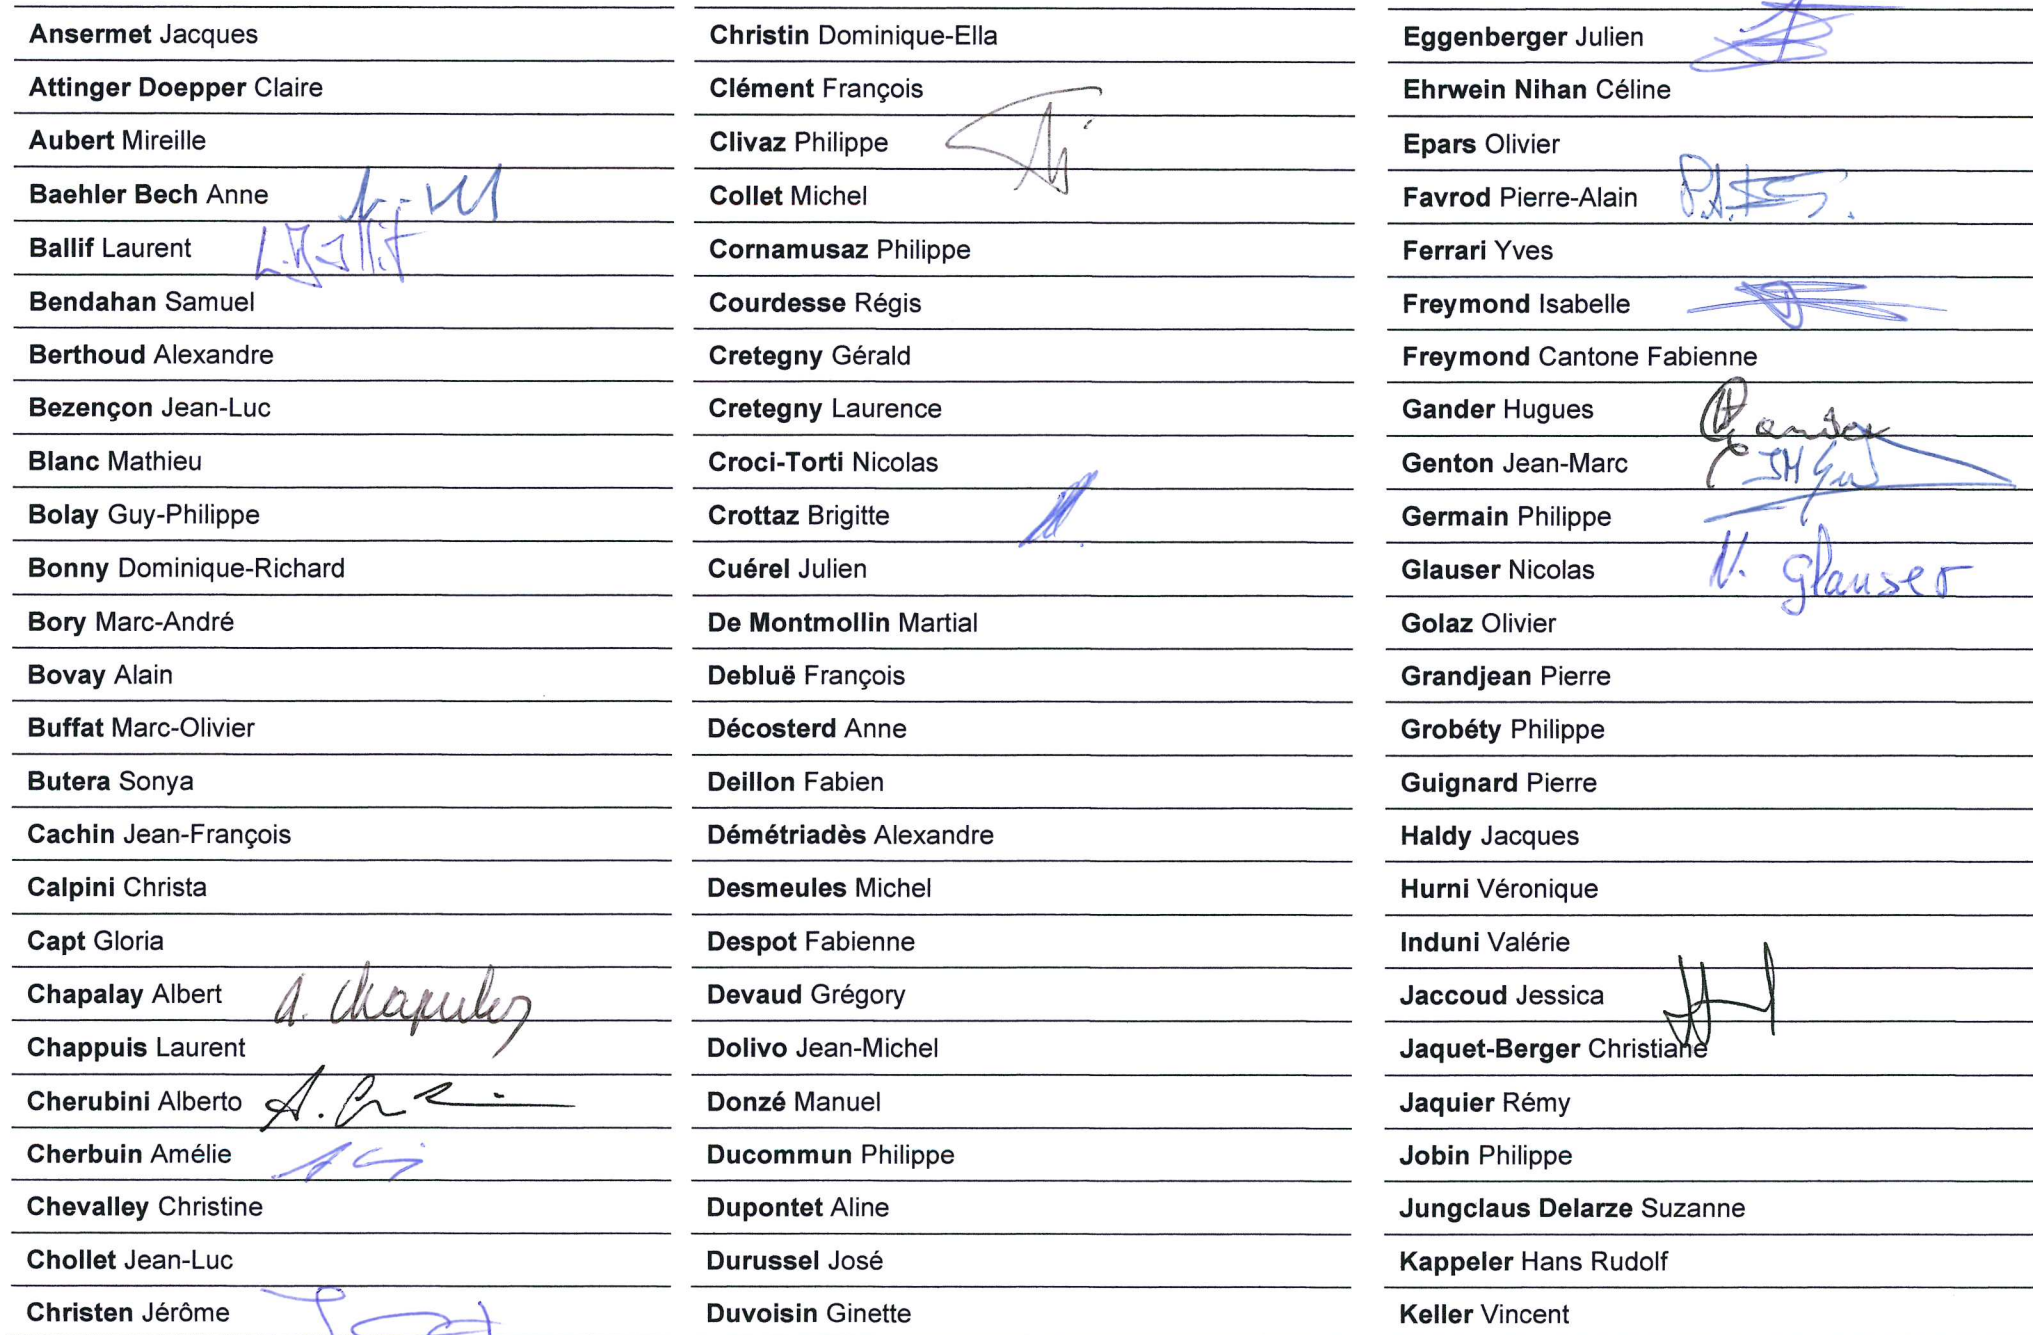 Ansermet Jacques
Attinger Doepper Claire
Aubert Mireille
Baehler Bech Anne
Ballif Laurent L. Ballif
Bendahan Samuel
Berthoud Alexandre
Bezençon Jean-Luc
Blanc Mathieu
Bolay Guy-Philippe
Bonny Dominique-Richard
Bory Marc-André
Bovay Alain
Buffat Marc-Olivier
Butera Sonya
Cachin Jean-François
Calpini Christa
Capt Gloria
Chapalay Albert A. Chapalay
Chappuis Laurent
Cherubini Alberto
Cherbuin Amélie
Chevalley Christine
Chollet Jean-Luc
Christen Jérôme
Christin Dominique-Ella
Clément François
Clivaz Philippe
Collet Michel
Cornamusaz Philippe
Courdesse Régis
Cretegny Gérald
Cretegny Laurence
Croci-Torti Nicolas
Crottaz Brigitte
Cuérel Julien
De Montmollin Martial
Debluë François
Décosterd Anne
Deillon Fabien
Démétriadès Alexandre
Desmeules Michel
Despot Fabienne
Devaud Grégory
Dolivo Jean-Michel
Donzé Manuel
Ducommun Philippe
Dupontet Aline
Durussel José
Duvoisin Ginette
Eggenberger Julien
Ehrwein Nihan Céline
Epars Olivier
Favrod Pierre-Alain
Ferrari Yves
Freymond Isabelle
Freymond Cantone Fabienne
Gander Hugues Gander
Genton Jean-Marc
Germain Philippe
Glauser Nicolas N. Glauser
Golaz Olivier
Grandjean Pierre
Grobéty Philippe
Guignard Pierre
Haldy Jacques
Hurni Véronique
Induni Valérie
Jaccoud Jessica
Jaquet-Berger Christiane
Jaquier Rémy
Jobin Philippe
Jungclaus Delarze Suzanne
Kappeler Hans Rudolf
Keller Vincent